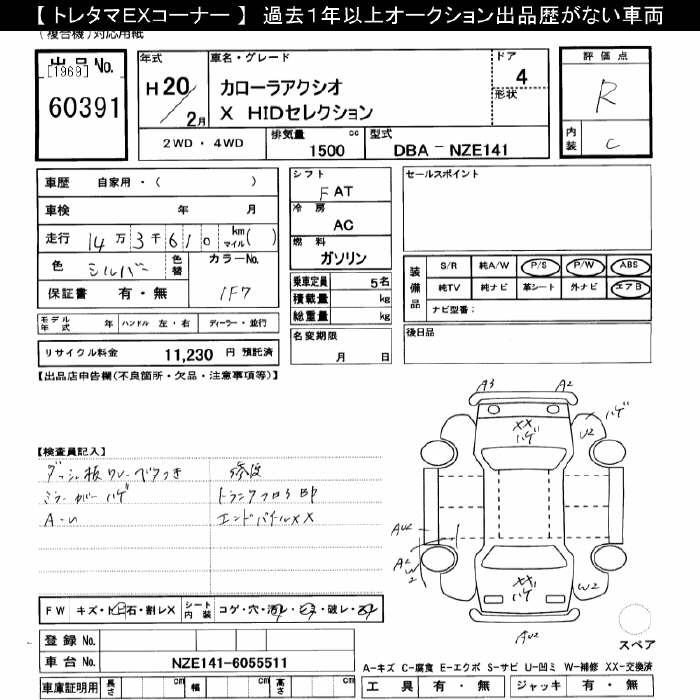 【 トレタマEXコーナー 】 過去１年以上オークション出品歴がない車両
(複合機)対応用紙
出品No.
[1969]
60391
年式
H 20／2月
車名・グレード
カローラアクシオ
X HIDセレクション
ドア
4
形状
評価点
R
内装
C
2WD・4WD
排気量 cc
1500
型式
DBA－NZE141
車歴 自家用・( )
車検 年 月
走行 14万3千610 km マイル( )
色 シルバー 色替
カラーNo.
1F7
保証書 有・無
シフト
F AT
冷房
AC
燃料
ガソリン
乗車定員 5名
積載量 kg
総重量 kg
名変期限
月 日
セールスポイント
装備品
S/R 純A/W P/S P/W ABS
純TV 純ナビ 革シート 外ナビ エアB
ナビ型番：
後日品
モデル年式 年 ハンドル 左・右 ディーラー・並行
リサイクル料金 11,230 円 預託済
【出品店申告欄(不良箇所・欠品・注意事項等)】
【検査員記入】
ダッシュ板ワレ ベタつき
修復
ミラーカバー ハゲ
A-U
エンドパネルXX
A3 A2
XX
ハゲ
ハゲ
U2
AU2
A2
W2
XX
ハゲ
W2
AU2
スペア
FW キズ・ト石・割レX
シート内装 コゲ・穴・
破レ・
登録 No.
車台 No. NZE141-6055511
車庫証明用 長さ cm 幅 cm 高さ cm
A-キズ C-腐食 E-エクボ S-サビ U-凹ミ W-補修 XX-交換済
工具 有・無 ジャッキ 有・無